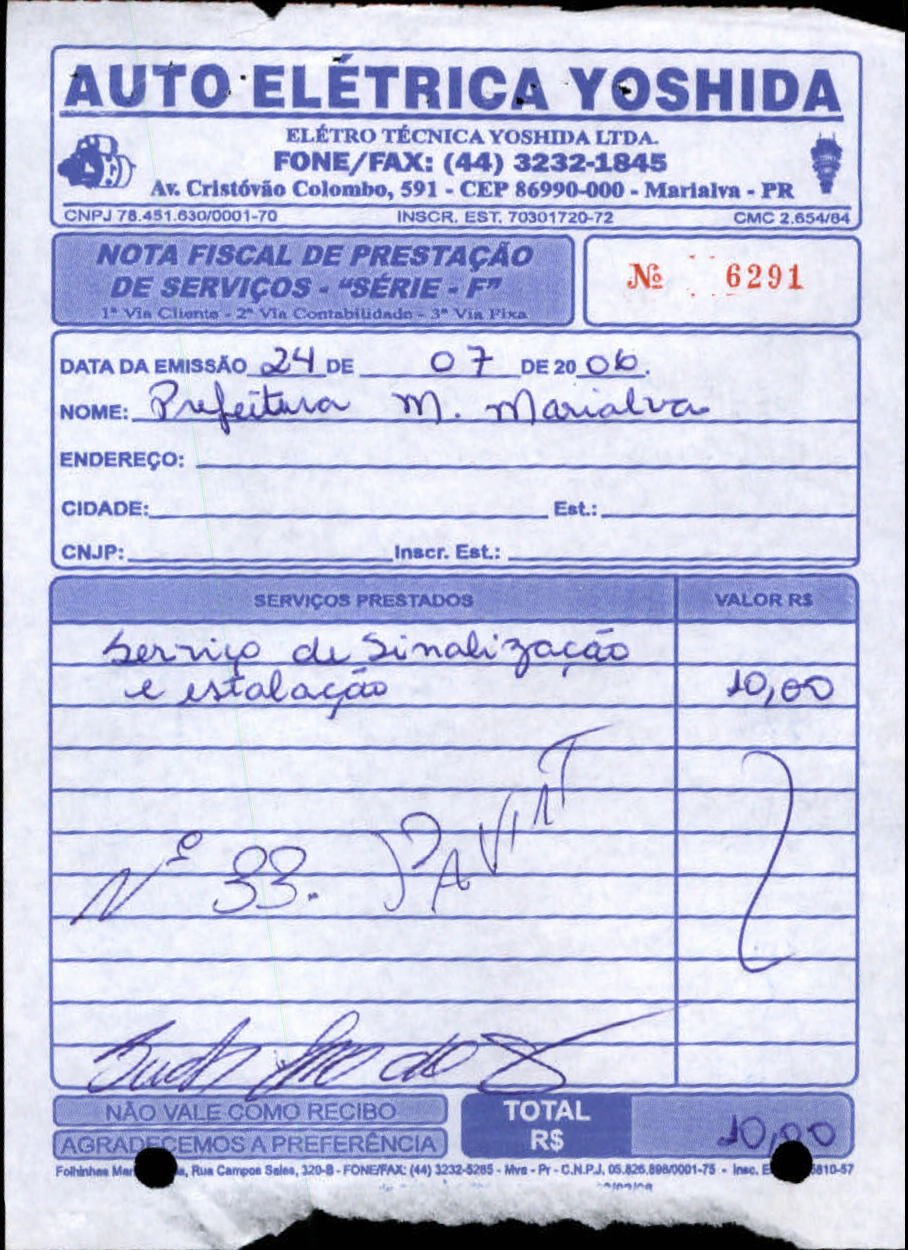 AUTO ELÉTRICA YOSHIDA
ELÉTRO TÉCNICA YOSHIDA LTDA.
FONE/FAX: (44) 3232-1845
Av. Cristóvão Colombo, 591 - CEP 86990-000 - Marialva - PR
CNPJ 78.451.630/0001-70 INSCR. EST. 70301720-72 CMC 2.654/84
NOTA FISCAL DE PRESTAÇÃO
DE SERVIÇOS - "SÉRIE - F"
1ª Via Cliente - 2ª Via Contabilidade - 3ª Via Fixa
Nº 6291
DATA DA EMISSÃO 24 DE 07 DE 20 06.
NOME: Prefeitura M. Marialva
ENDEREÇO:
CIDADE: Est.:
CNJP: Inscr. Est.:
SERVIÇOS PRESTADOS VALOR R$
Serviço de Sinalização
e estalação 10,00
Nº 33.
NÃO VALE COMO RECIBO
AGRADECEMOS A PREFERÊNCIA
TOTAL
R$ 10,00
Folhinhas Rua Campos Sales, 320-B - FONE/FAX: (44) 3232-5265 - Mva - Pr - C.N.P.J. 05.826.898/0001-75 - Insc.